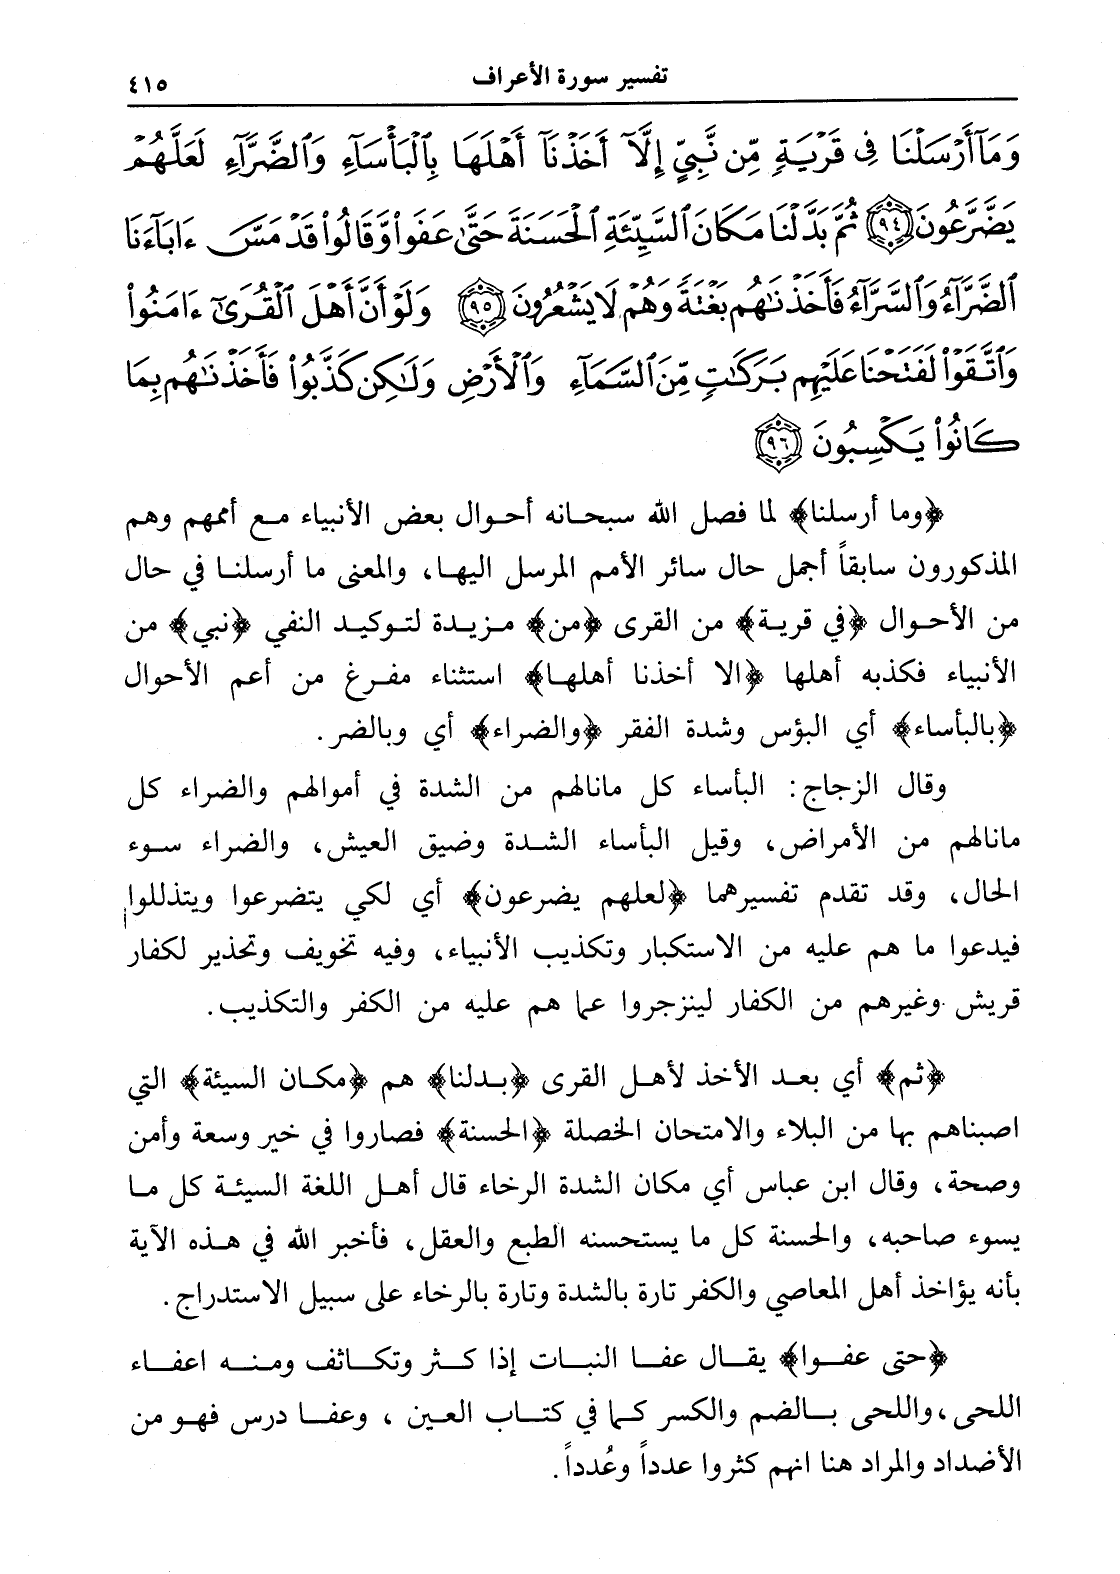 تفسير سورة الأعراف ٤١٥
وَمَآ أَرْسَلْنَا فِى قَرْيَةٍ مِّن نَّبِىٍّ إِلَّآ أَخَذْنَآ أَهْلَهَا بِٱلْبَأْسَآءِ وَٱلضَّرَّآءِ لَعَلَّهُمْ
يَضَّرَّعُونَ ٩٤ ثُمَّ بَدَّلْنَا مَكَانَ ٱلسَّيِّئَةِ ٱلْحَسَنَةَ حَتَّىٰ عَفَوا۟ وَّقَالُوا۟ قَدْ مَسَّ ءَابَآءَنَا
ٱلضَّرَّآءُ وَٱلسَّرَّآءُ فَأَخَذْنَٰهُم بَغْتَةً وَهُمْ لَا يَشْعُرُونَ ٩٥ وَلَوْ أَنَّ أَهْلَ ٱلْقُرَىٰٓ ءَامَنُوا۟
وَٱتَّقَوْا۟ لَفَتَحْنَا عَلَيْهِم بَرَكَٰتٍ مِّنَ ٱلسَّمَآءِ وَٱلْأَرْضِ وَلَٰكِن كَذَّبُوا۟ فَأَخَذْنَٰهُم بِمَا
كَانُوا۟ يَكْسِبُونَ ٩٦
﴿وما أرسلنا﴾ لما فصل الله سبحانه أحوال بعض الأنبياء مع أممهم وهم
المذكورون سابقاً أجمل حال سائر الأمم المرسل اليها، والمعنى ما أرسلنا في حال
من الأحوال ﴿في قرية﴾ من القرى ﴿من﴾ مزيدة لتوكيد النفي ﴿نبي﴾ من
الأنبياء فكذبه أهلها ﴿الا أخذنا أهلها﴾ استثناء مفرغ من أعم الأحوال
﴿بالبأساء﴾ أي البؤس وشدة الفقر ﴿والضراء﴾ أي وبالضر.
وقال الزجاج: البأساء كل مانالهم من الشدة في أموالهم والضراء كل
مانالهم من الأمراض، وقيل البأساء الشدة وضيق العيش، والضراء سوء
الحال، وقد تقدم تفسيرهما ﴿لعلهم يضرعون﴾ أي لكي يتضرعوا ويتذللوا
فيدعوا ما هم عليه من الاستكبار وتكذيب الأنبياء، وفيه تخويف وتحذير لكفار
قريش وغيرهم من الكفار لينزجروا عما هم عليه من الكفر والتكذيب.
﴿ثم﴾ أي بعد الأخذ لأهل القرى ﴿بدلنا﴾ هم ﴿مكان السيئة﴾ التي
اصبناهم بها من البلاء والامتحان الخصلة ﴿الحسنة﴾ فصاروا في خير وسعة وأمن
وصحة، وقال ابن عباس أي مكان الشدة الرخاء قال أهل اللغة السيئة كل ما
يسوء صاحبه، والحسنة كل ما يستحسنه الطبع والعقل، فأخبر الله في هذه الآية
بأنه يؤاخذ أهل المعاصي والكفر تارة بالشدة وتارة بالرخاء على سبيل الاستدراج.
﴿حتى عفوا﴾ يقال عفا النبات إذا كثر وتكاثف ومنه اعفاء
اللحى، واللحى بالضم والكسر كما في كتاب العين ، وعفا درس فهو من
الأضداد والمراد هنا انهم كثروا عدداً وعُدداً.